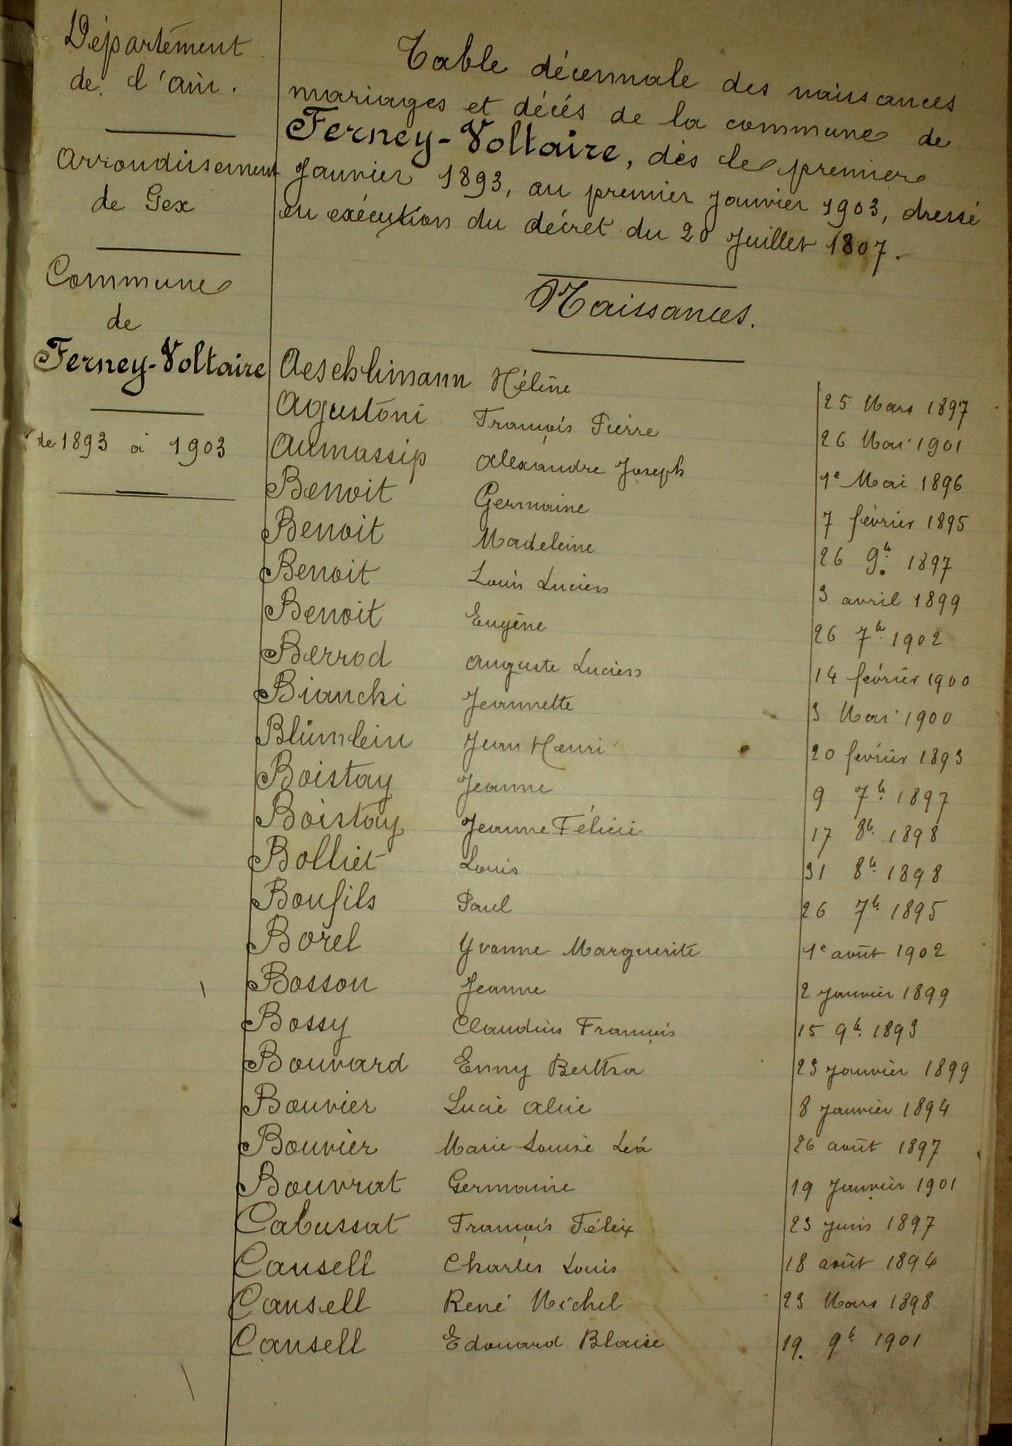 Département
de l'ain.
Arrondissement
de Gex
Commune
de
Ferney-Voltaire
de 1893 à 1903
Table décennale des naissances
mariages et décés de la commune de
Ferney-Voltaire, dès le premier
Janvier 1893, au premier janvier 1903, dressé
en exécution du décret du 20 Juillet 1807.-
Naissances.
Aeschlimann Hélène 25 Mars 1897
Agustoni François Pierre 26 Mai 1901
Aumassip Alexandre Joseph 1e Mai 1896
Benoit Germaine 7 février 1895
Benoit Madeleine 26 9b. 1897
Benoit Louis Lucien 3 avril 1899
Benoit Eugène 26 7b. 1902
Berrod Auguste Lucien 14 février 1900
Bianchi Jeannette 3 Mai 1900
Blümlein Jean Henri 20 février 1893
Boistay Jeanne 9 7b. 1897
Boistay Jeanne Félicie 17 8b. 1898
Bolliet Louis 31 8b. 1898
Bonfils Paul 26 7b. 1895
Borel Yvonne Marguerite 1e août 1902
Bosson Jeanne 2 janvier 1899
Bossy Claudius François 15 9b. 1893
Bouvard Enny Bertha 23 janvier 1899
Bouvier Lucie Alice 8 janvier 1894
Bouvier Marie Louise Léa 26 août 1897
Bouvrat Germaine 19 Janvier 1901
Cabussat François Félix 23 juin 1897
Cansell Charles Louis 18 août 1894
Cansell René Michel 23 Mars 1898
Cansell Edouard Blaise 19. 9b 1901